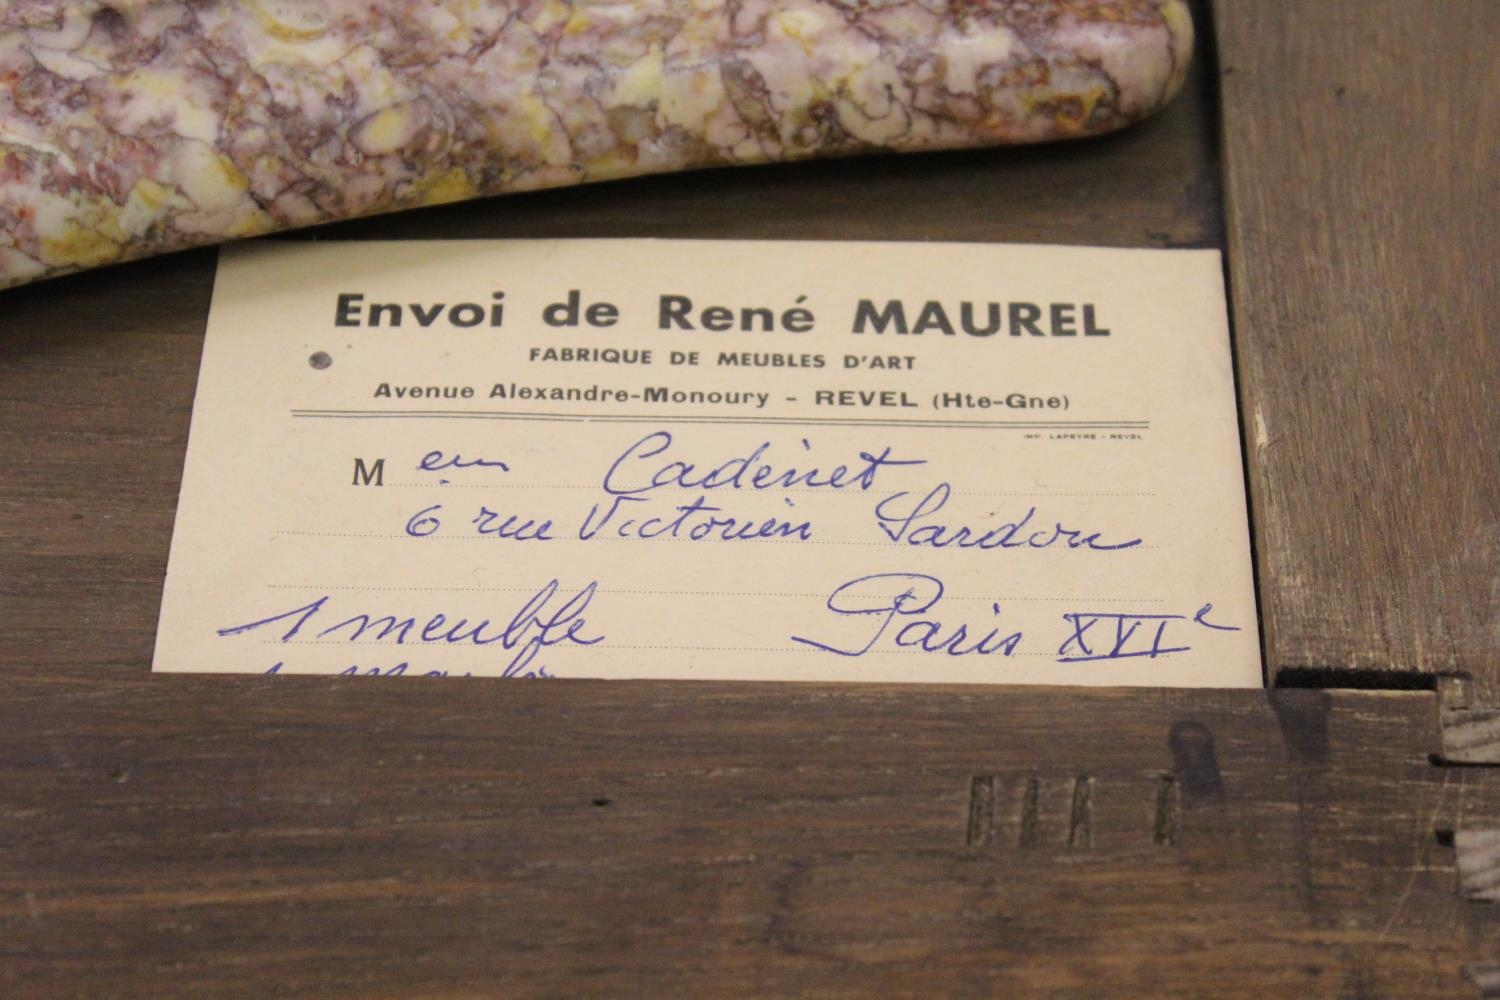 Envoi de René MAUREL
FABRIQUE DE MEUBLES D'ART
Avenue Alexandre-Monoury - REVEL (Hte-Gne)
IMP. LAPEYRE - REVEL
M Cadenet
6 rue Victorien Sardou
1 meuble Paris XVIe